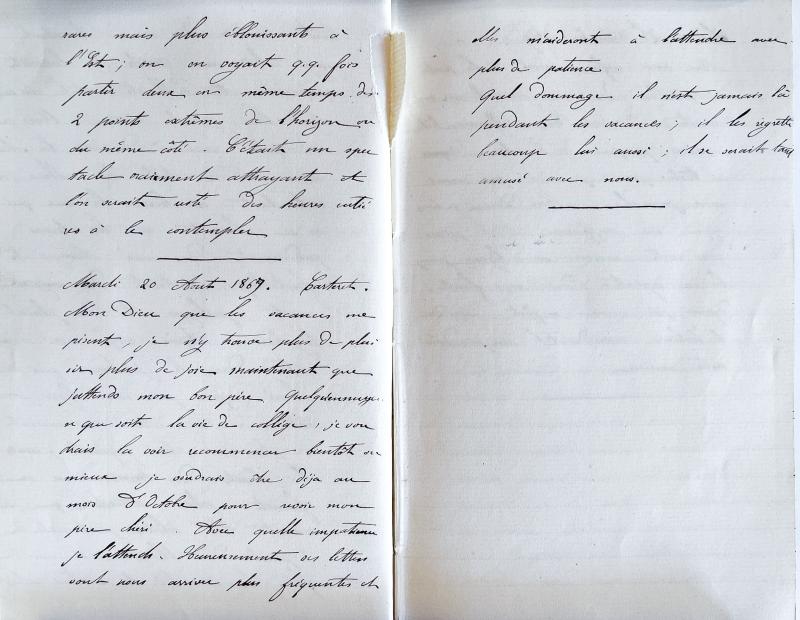 rares mais plus éblouissants à
l'Est ; on en voyait q.q. fois
partir deux en même temps des
2 points extrêmes de l'horizon ou
du même côté. C'était un spec
tacle vraiment attrayant et
l'on serait resté des heures entiè
res à le contempler
Mardi 20 Août 1867. Carteret.
Mon Dieu que les vacances me
pèsent, je n'y trouve plus de plai
sir plus de joie maintenant que
j'attends mon bon père Quelqu'ennuyeu
que soit la vie de collège, je vou
drais la voir recommencer bientôt ou
mieux je voudrais être déja au
mois d'Octobre pour revoir mon
père chéri. Avec quelle impatience
je l'attends. Heureusement ses lettres
vont nous arriver plus fréquentes et
elles m'aideront à l'attendre avec
plus de patience
Quel dommage il n'est jamais là
pendant les vacances ; il les regrette
beaucoup lui aussi ; il se serait tant
amusé avec nous.